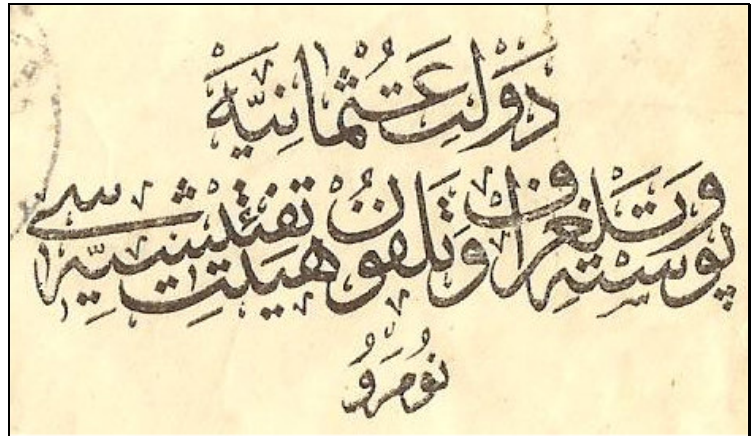 دولت عثمانيه
پوسته وتلغراف وتلفون هيئت تفتيشيه سی
نومرو